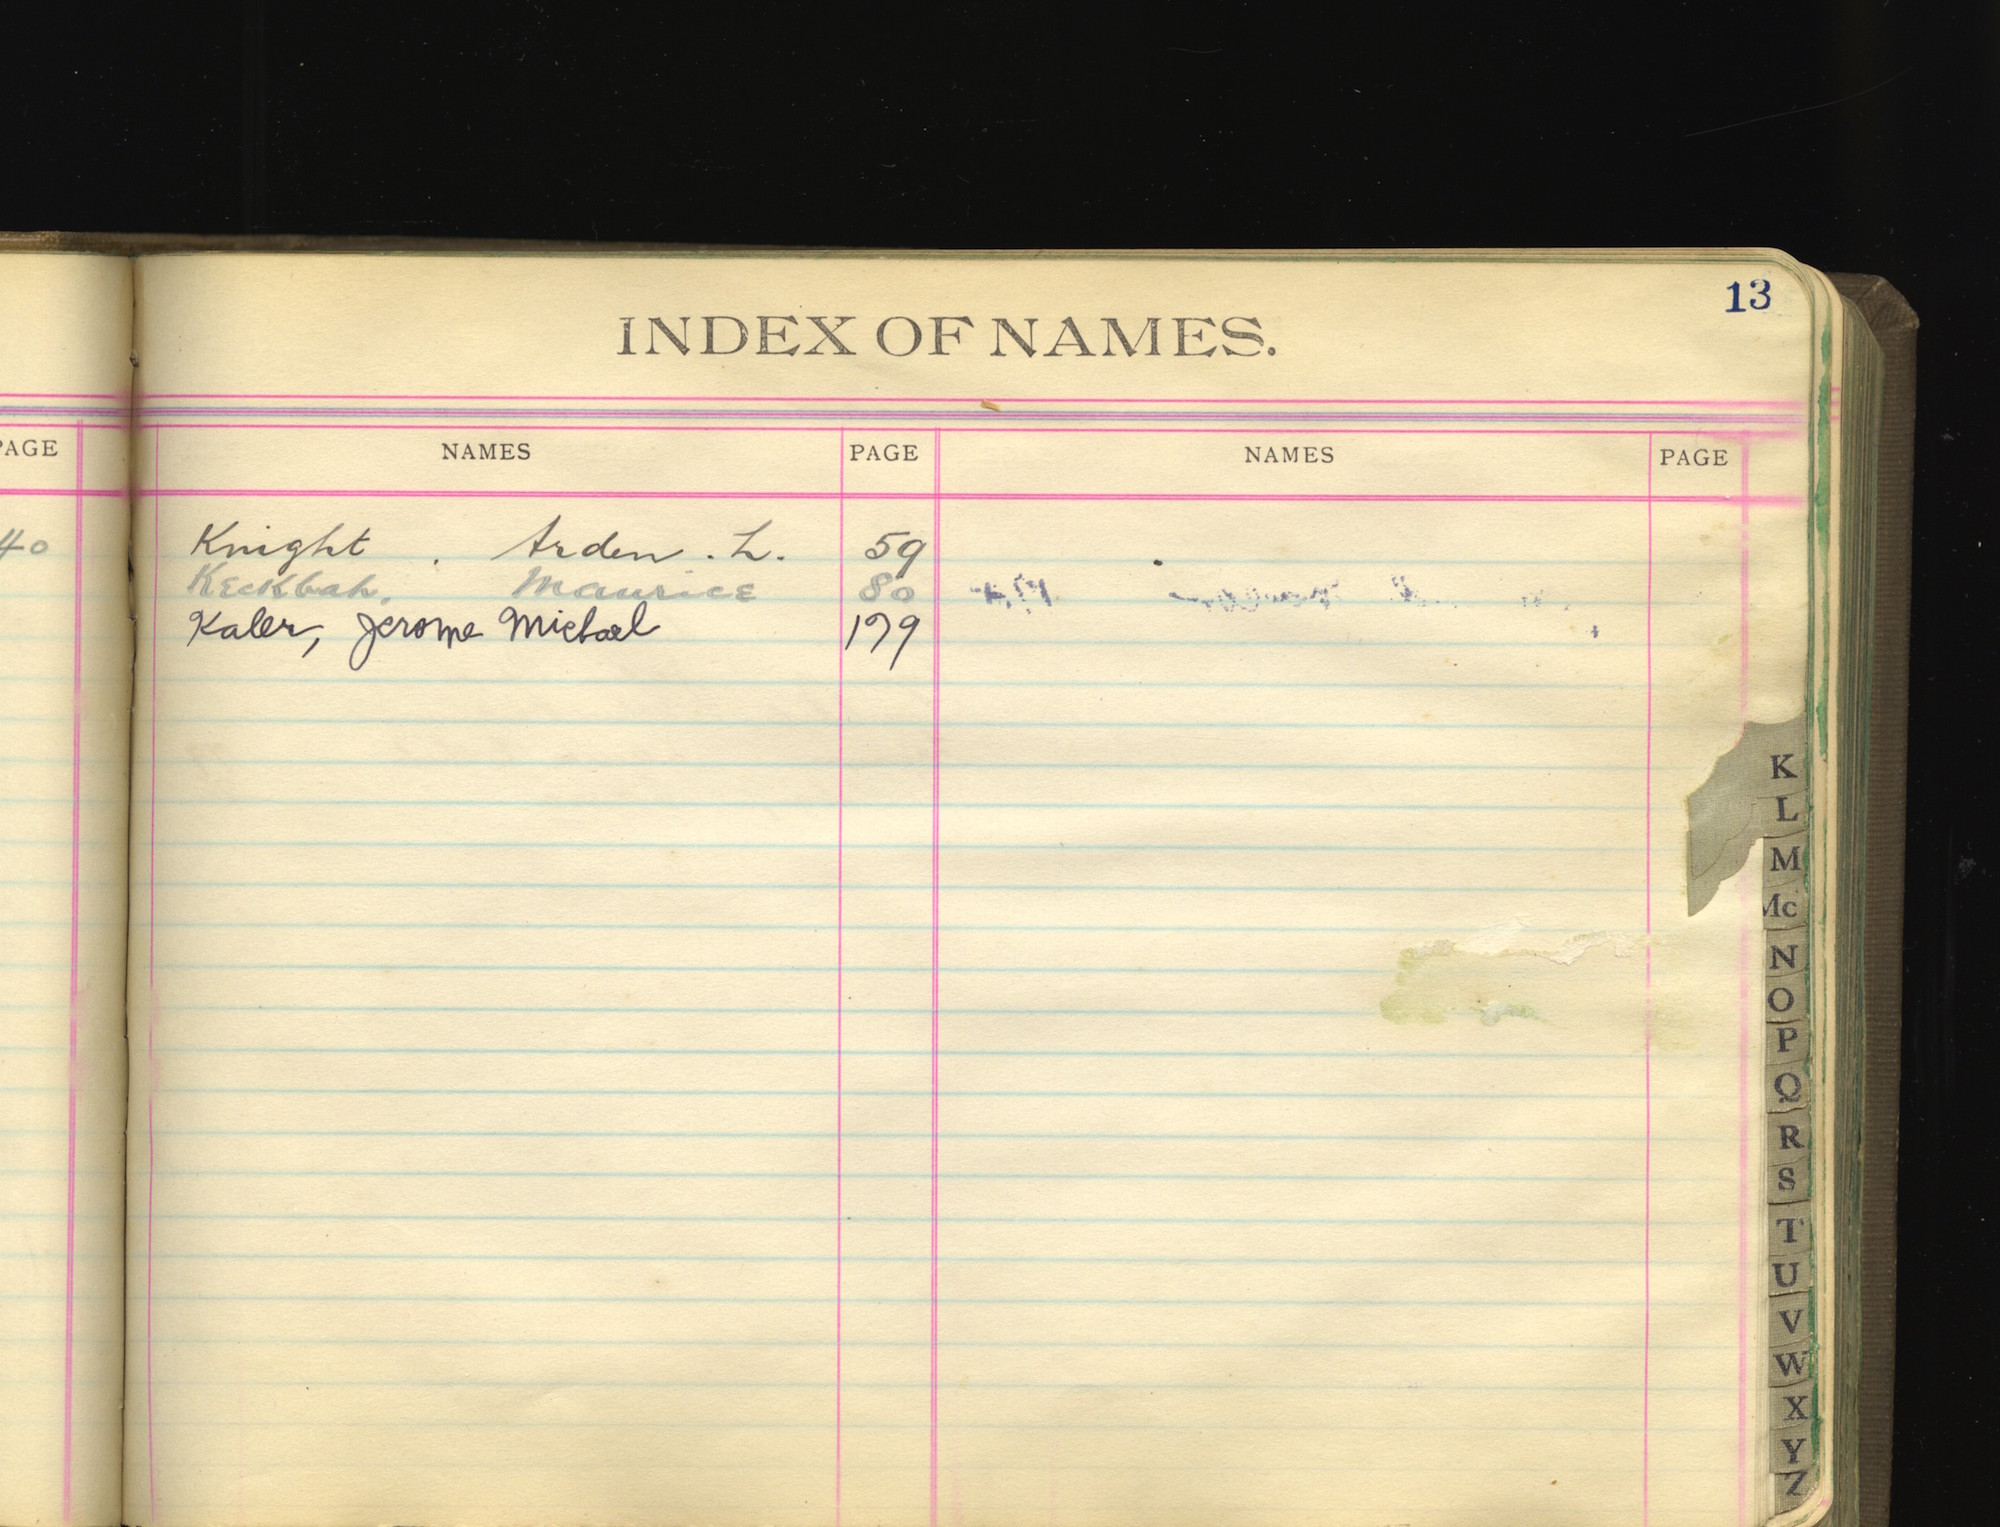 13
INDEX OF NAMES.
PAGE NAMES PAGE NAMES PAGE
40 Knight . Arden . L. 59
Keckbah, Maurice 80
Kaler, Jerome Michael 179
K
L
M
Mc
N
O
P
Q
R
S
T
U
V
W
X
Y
Z